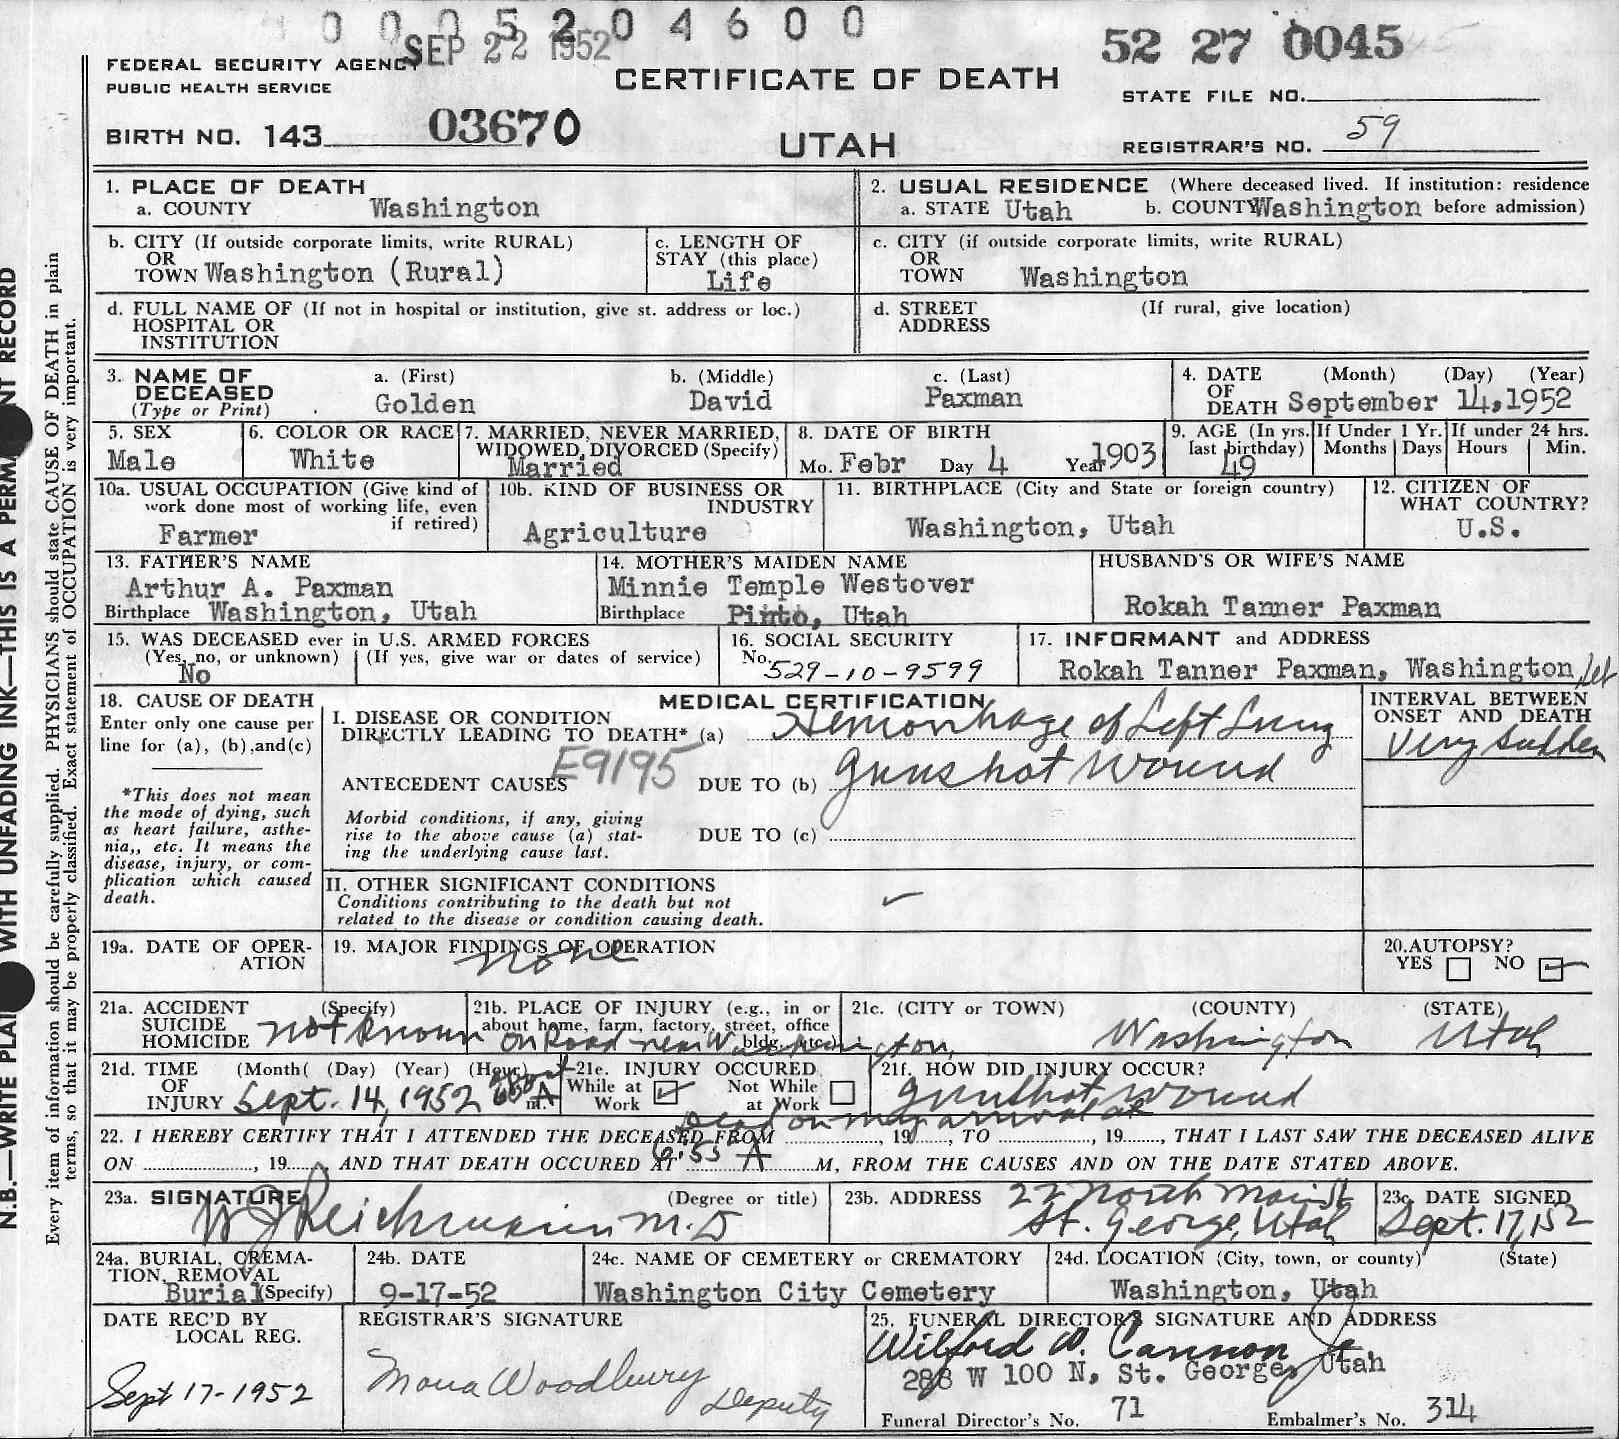 0 0 0 5 2 0 4 6 0 0
SEP 22 1952
52 27 0045
FEDERAL SECURITY AGENCY
PUBLIC HEALTH SERVICE
CERTIFICATE OF DEATH
STATE FILE NO.
BIRTH NO. 143 03670
UTAH
REGISTRAR'S NO. 59
N.B.—WRITE PLAI WITH UNFADING INK—THIS IS A PERMA NT RECORD
Every item of information should be carefully supplied. PHYSICIANS should state CAUSE OF DEATH in plain
terms, so that it may be properly classified. Exact statement of OCCUPATION is very important.
1. PLACE OF DEATH
a. COUNTY Washington
2. USUAL RESIDENCE (Where deceased lived. If institution: residence
a. STATE Utah b. COUNTY Washington before admission)
b. CITY (If outside corporate limits, write RURAL)
OR
TOWN Washington (Rural)
c. LENGTH OF
STAY (this place)
Life
c. CITY (if outside corporate limits, write RURAL)
OR
TOWN Washington
d. FULL NAME OF (If not in hospital or institution, give st. address or loc.)
HOSPITAL OR
INSTITUTION
d. STREET (If rural, give location)
ADDRESS
3. NAME OF
DECEASED
(Type or Print)
a. (First)
Golden
b. (Middle)
David
c. (Last)
Paxman
4. DATE (Month) (Day) (Year)
OF
DEATH September 14, 1952
5. SEX
Male
6. COLOR OR RACE
White
7. MARRIED, NEVER MARRIED,
WIDOWED, DIVORCED (Specify)
Married
8. DATE OF BIRTH
Mo. Febr Day 4 Year 1903
9. AGE (In yrs.
last birthday)
49
If Under 1 Yr.
Months Days
If under 24 hrs.
Hours Min.
10a. USUAL OCCUPATION (Give kind of
work done most of working life, even
if retired)
Farmer
10b. KIND OF BUSINESS OR
INDUSTRY
Agriculture
11. BIRTHPLACE (City and State or foreign country)
Washington, Utah
12. CITIZEN OF
WHAT COUNTRY?
U.S.
13. FATHER'S NAME
Arthur A. Paxman
Birthplace Washington, Utah
14. MOTHER'S MAIDEN NAME
Minnie Temple Westover
Birthplace Pinto, Utah
HUSBAND'S OR WIFE'S NAME
Rokah Tanner Paxman
15. WAS DECEASED ever in U.S. ARMED FORCES
(Yes, no, or unknown) (If yes, give war or dates of service)
No
16. SOCIAL SECURITY
No. 529-10-9599
17. INFORMANT and ADDRESS
Rokah Tanner Paxman, Washington, Ut
18. CAUSE OF DEATH
Enter only one cause per
line for (a), (b), and (c)
*This does not mean
the mode of dying, such
as heart failure, asthe-
nia,, etc. It means the
disease, injury, or com-
plication which caused
death.
MEDICAL CERTIFICATION
I. DISEASE OR CONDITION
DIRECTLY LEADING TO DEATH* (a) Hemorrhage of Left Lung
ANTECEDENT CAUSES E9195 DUE TO (b) Gunshot Wound
Morbid conditions, if any, giving
rise to the above cause (a) stat-
ing the underlying cause last.
DUE TO (c)
INTERVAL BETWEEN
ONSET AND DEATH
Very Sudden
II. OTHER SIGNIFICANT CONDITIONS
Conditions contributing to the death but not
related to the disease or condition causing death.
19a. DATE OF OPER-
ATION
19. MAJOR FINDINGS OF OPERATION
none
20. AUTOPSY?
YES NO
21a. ACCIDENT (Specify)
SUICIDE
HOMICIDE not known
21b. PLACE OF INJURY (e.g., in or
about home, farm, factory, street, office
bldg., etc.)
On Road near Washington,
21c. (CITY or TOWN) (COUNTY) (STATE)
Washington Utah
21d. TIME (Month( (Day) (Year) (Hour)
OF
INJURY Sept. 14, 1952 A m.
21e. INJURY OCCURED
While at Work
Not While at Work
21f. HOW DID INJURY OCCUR?
Gunshot Wound
Dead on my arrival at
22. I HEREBY CERTIFY THAT I ATTENDED THE DECEASED FROM , 19 , TO , 19 , THAT I LAST SAW THE DECEASED ALIVE
ON , 19 , AND THAT DEATH OCCURED AT 6:55 A M, FROM THE CAUSES AND ON THE DATE STATED ABOVE.
23a. SIGNATURE (Degree or title)
W J Reichmann M.D
23b. ADDRESS 22 North Main St
St. George, Utah
23c. DATE SIGNED
Sept. 17, 152
24a. BURIAL, CREMA-
TION, REMOVAL
Burial (Specify)
24b. DATE
9-17-52
24c. NAME OF CEMETERY or CREMATORY
Washington City Cemetery
24d. LOCATION (City, town, or county) (State)
Washington, Utah
DATE REC'D BY
LOCAL REG.
Sept 17-1952
REGISTRAR'S SIGNATURE
Mona Woodbury
Deputy
25. FUNERAL DIRECTOR'S SIGNATURE AND ADDRESS
Wilford W. Cannon Jr.
288 W 100 N, St. George, Utah
Funeral Director's No. 71 Embalmer's No. 314